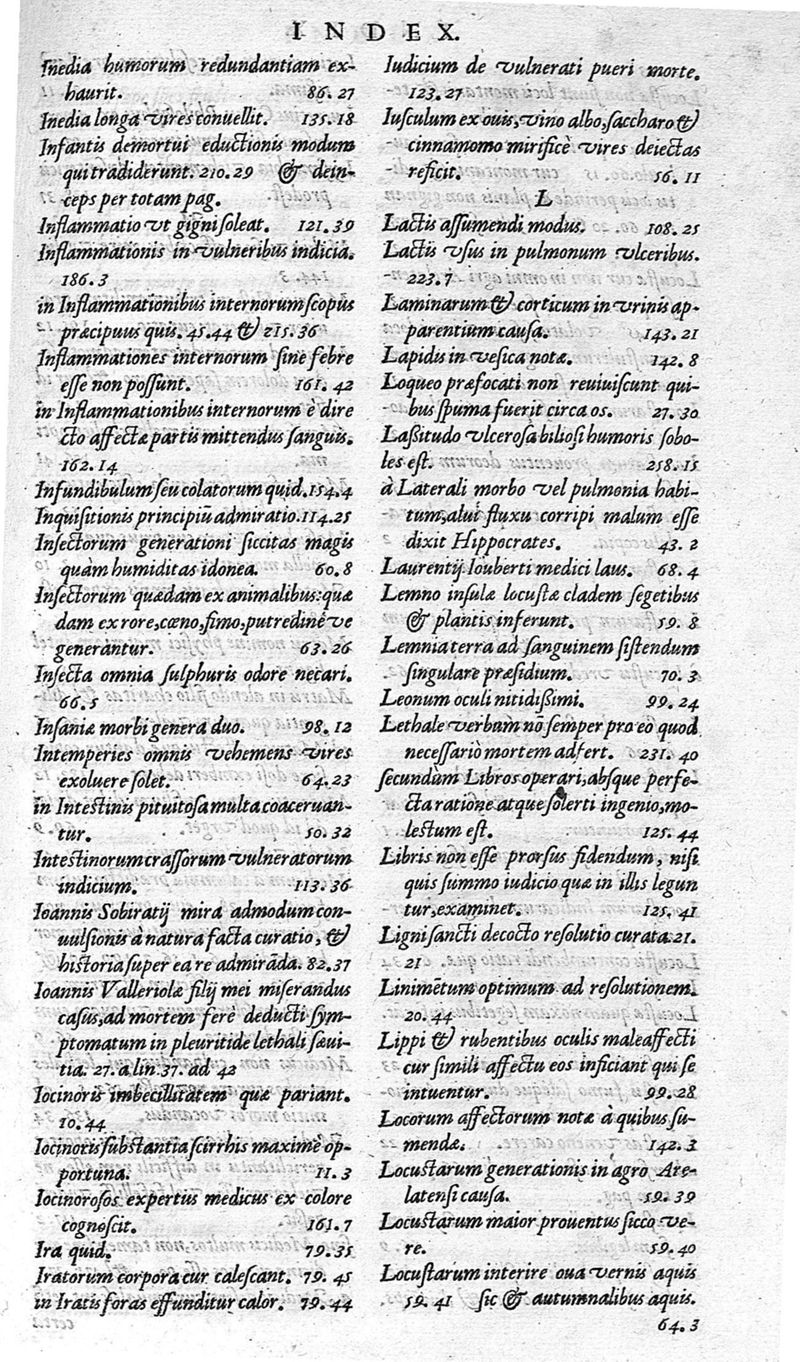 INDEX.
Inedia humorum redundantiam ex-
haurit. 86. 27
Inedia longa vires conuellit. 135. 18
Infantis demortui eductionis modum
qui tradiderunt. 210. 29 & dein-
ceps per totam pag.
Inflammatio vt gigni soleat. 121. 39
Inflammationis in vulneribus indicia.
186. 3
in Inflammationibus internorum scopus
præcipuus quis. 45. 44 & 215. 36
Inflammationes internorum sine febre
esse non possunt. 161. 42
in Inflammationibus internorum è dire
cto affectæ partis mittendus sanguis.
162. 14
Infundibulum seu colatorum quid. 154. 4
Inquisitionis principiū admiratio. 114. 25
Insectorum generationi siccitas magis
quàm humiditas idonea. 60. 8
Insectorum quædam ex animalibus: quæ
dam ex rore, cœno, fimo, putredine ve
generantur. 63. 26
Insecta omnia sulphuris odore necari.
66. 5
Insaniæ morbi genera duo. 98. 12
Intemperies omnis vehemens vires
exoluere solet. 64. 23
in Intestinis pituitosa multa coaceruan-
tur. 50. 32
Intestinorum crassorum vulneratorum
indicium. 113. 36
Ioannis Sobiratij mira admodum con-
uulsionis à natura facta curatio, &
historia super ea re admirāda. 82. 37
Ioannis Valleriolæ filij mei miserandus
casus, ad mortem ferè deducti sym-
ptomatum in pleuritide lethali sæui-
tia. 27. a lin. 37. ad 42
Iocinoris imbecillitatem quæ pariant.
10. 44
Iocinoris substantia scirrhis maximè op-
portuna. 11. 3
Iocinorosos expertus medicus ex colore
cognoscit. 161. 7
Ira quid. 79. 35
Iratorum corpora cur calescant. 79. 45
in Iratis foras effunditur calor. 79. 44
Iudicium de vulnerati pueri morte.
123. 27
Iusculum ex ouis, vino albo, saccharo &
cinnamomo mirificè vires deiectas
reficit. 56. 11
L
Lactis assumendi modus. 108. 25
Lactis vsus in pulmonum vlceribus.
223. 7
Laminarum & corticum in vrinis ap-
parentium causa. 143. 21
Lapidis in vesica notæ. 142. 8
Loqueo præfocati non reuiuiscunt qui-
bus spuma fuerit circa os. 27. 30
Lassitudo vlcerosa biliosi humoris sobo-
les est. 258. 15
à Laterali morbo vel pulmonia habi-
tum, alui fluxu corripi malum esse
dixit Hippocrates. 43. 2
Laurentij Iouberti medici laus. 68. 4
Lemno insulæ locustæ cladem segetibus
& plantis inferunt. 59. 8
Lemnia terra ad sanguinem sistendum
singulare præsidium. 70. 3
Leonum oculi nitidissimi. 99. 24
Lethale verbum nō semper pro eo quod
necessariò mortem adfert. 231. 40
secundùm Libros operari, absque perfe-
cta ratione atque solerti ingenio, mo-
lestum est. 125. 44
Libris non esse prorsus fidendum, nisi
quis summo iudicio quæ in illis legun
tur, examinet. 125. 41
Ligni sancti decocto resolutio curata. 21.
21
Linimētum optimum ad resolutionem.
20. 44
Lippi & rubentibus oculis male affecti
cur simili affectu eos inficiant qui se
intuentur. 99. 28
Locorum affectorum notæ à quibus su-
mendæ. 142. 3
Locustarum generationis in agro Are-
latensi causa. 59. 39
Locustarum maior prouentus sicco ve-
re. 59. 40
Locustarum interire oua vernis aquis
59. 41 sic & autumnalibus aquis.
64. 3